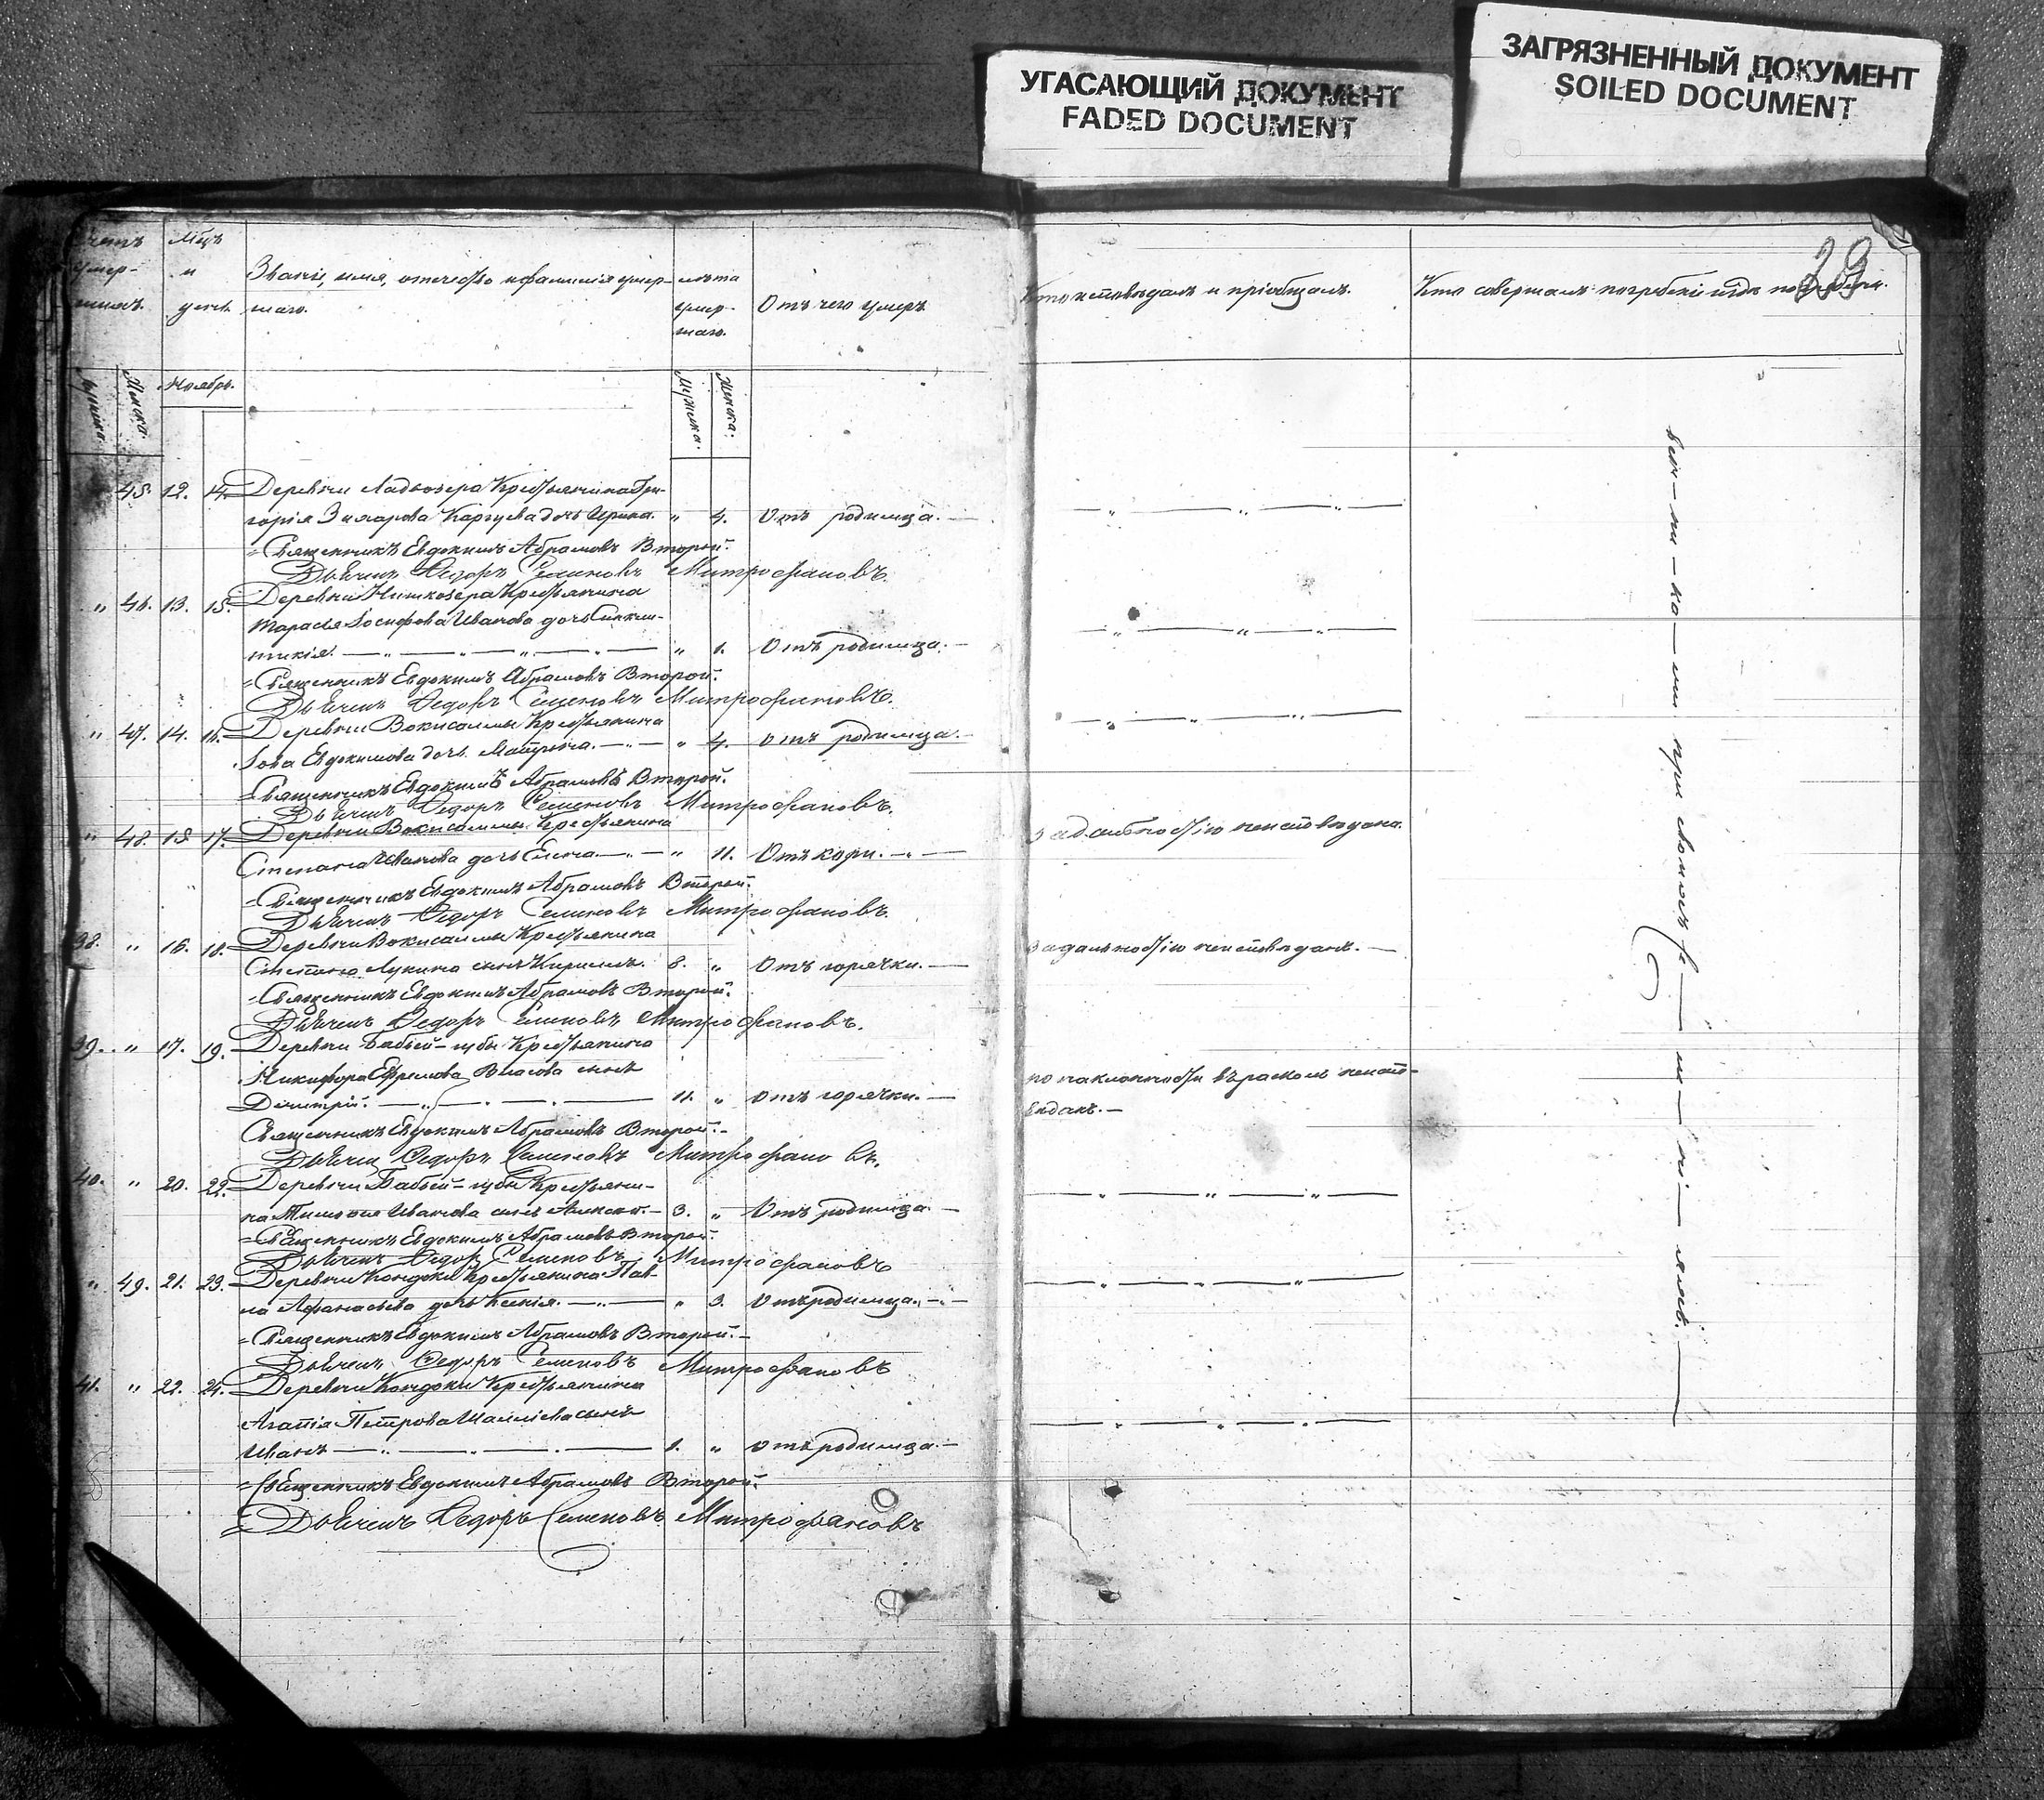 УГАСАЮЩИЙ ДОКУМЕНТ
FADED DOCUMENT
ЗАГРЯЗНЕННЫЙ ДОКУМЕНТ
SOILED DOCUMENT
39
Мцъ
умер- и Званіе, имя, отчество и фамилія умер- лѣта
шихъ. день. шаго. умер- Отъ чего умеръ
шаго.
Кто исповѣдалъ и пріобщалъ. Кто совершалъ погребеніе и гдѣ погребены.
Женска. Ноябрь. Мужска. Женска.
45. 12. 14. Деревни Ладвозера Крестьянина Гри-
горія Захарова Каргуева дочь Ирина. " 4. Отъ родимца.
Священникъ Евдокимъ Абрамовъ Второй.
Дьячекъ Федоръ Семеновъ Митрофановъ.
" 46. 13. 15. Деревни Крестьянина
Тарасія Іосифова Иванова дочь Синкли-
тикія. " 1. Отъ родимца.
Священникъ Евдокимъ Абрамовъ Второй.
Дьячекъ Федоръ Семеновъ Митрофановъ.
" 47. 14. 16. Деревни Вокнаволока Крестьянина
Іова Евдокимова дочь Матрена. " 4. отъ родимца.
Священникъ Евдокимъ Абрамовъ Второй.
Дьячекъ Федоръ Семеновъ Митрофановъ.
" 48. 15. 17. Деревни Крестьянина
Степана Иванова дочь Елена. " 11. Отъ кори.
за дальностію неисповѣдана.
Священникъ Евдокимъ Абрамовъ Второй.
Дьячекъ Федоръ Семеновъ Митрофановъ.
38. " 16. 18. Деревни Крестьянина
Степана Лукина сынъ Кириллъ. 8. " Отъ горячки.
за дальностію неисповѣданъ.
Священникъ Евдокимъ Абрамовъ Второй.
Дьячекъ Федоръ Семеновъ Митрофановъ.
39. " 17. 19. Деревни Бабьей-губы Крестьянина
Никифора Ефремова Власова сынъ
Димитрій. 11. " отъ горячки.
по наклонности въ расколъ неиспо-
вѣданъ.
Священникъ Евдокимъ Абрамовъ Второй.
Дьячекъ Федоръ Семеновъ Митрофановъ.
40. " 20. 22. Деревни Бабьей-губы Крестьяни-
на Тимофея Иванова сынъ Алексей. 3. " Отъ родимца.
Священникъ Евдокимъ Абрамовъ Второй.
Дьячекъ Федоръ Семеновъ Митрофановъ
" 49. 21. 23. Деревни Кондоки Крестьянина Пав-
ла Афанасьева дочь Ксенія. " 3. Отъ родимца.
Священникъ Евдокимъ Абрамовъ Второй.
Дьячекъ Федоръ Семеновъ Митрофановъ
41. " 22. 24. Деревни Кондоки Крестьянина
Агапія Петрова сынъ
Иванъ 1. " отъ родимца.
Священникъ Евдокимъ Абрамовъ Второй.
Дьячекъ Федоръ Семеновъ Митрофановъ